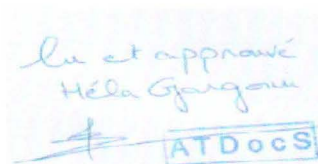 lu et approuvé
Héla Gargouri
ATDOCS